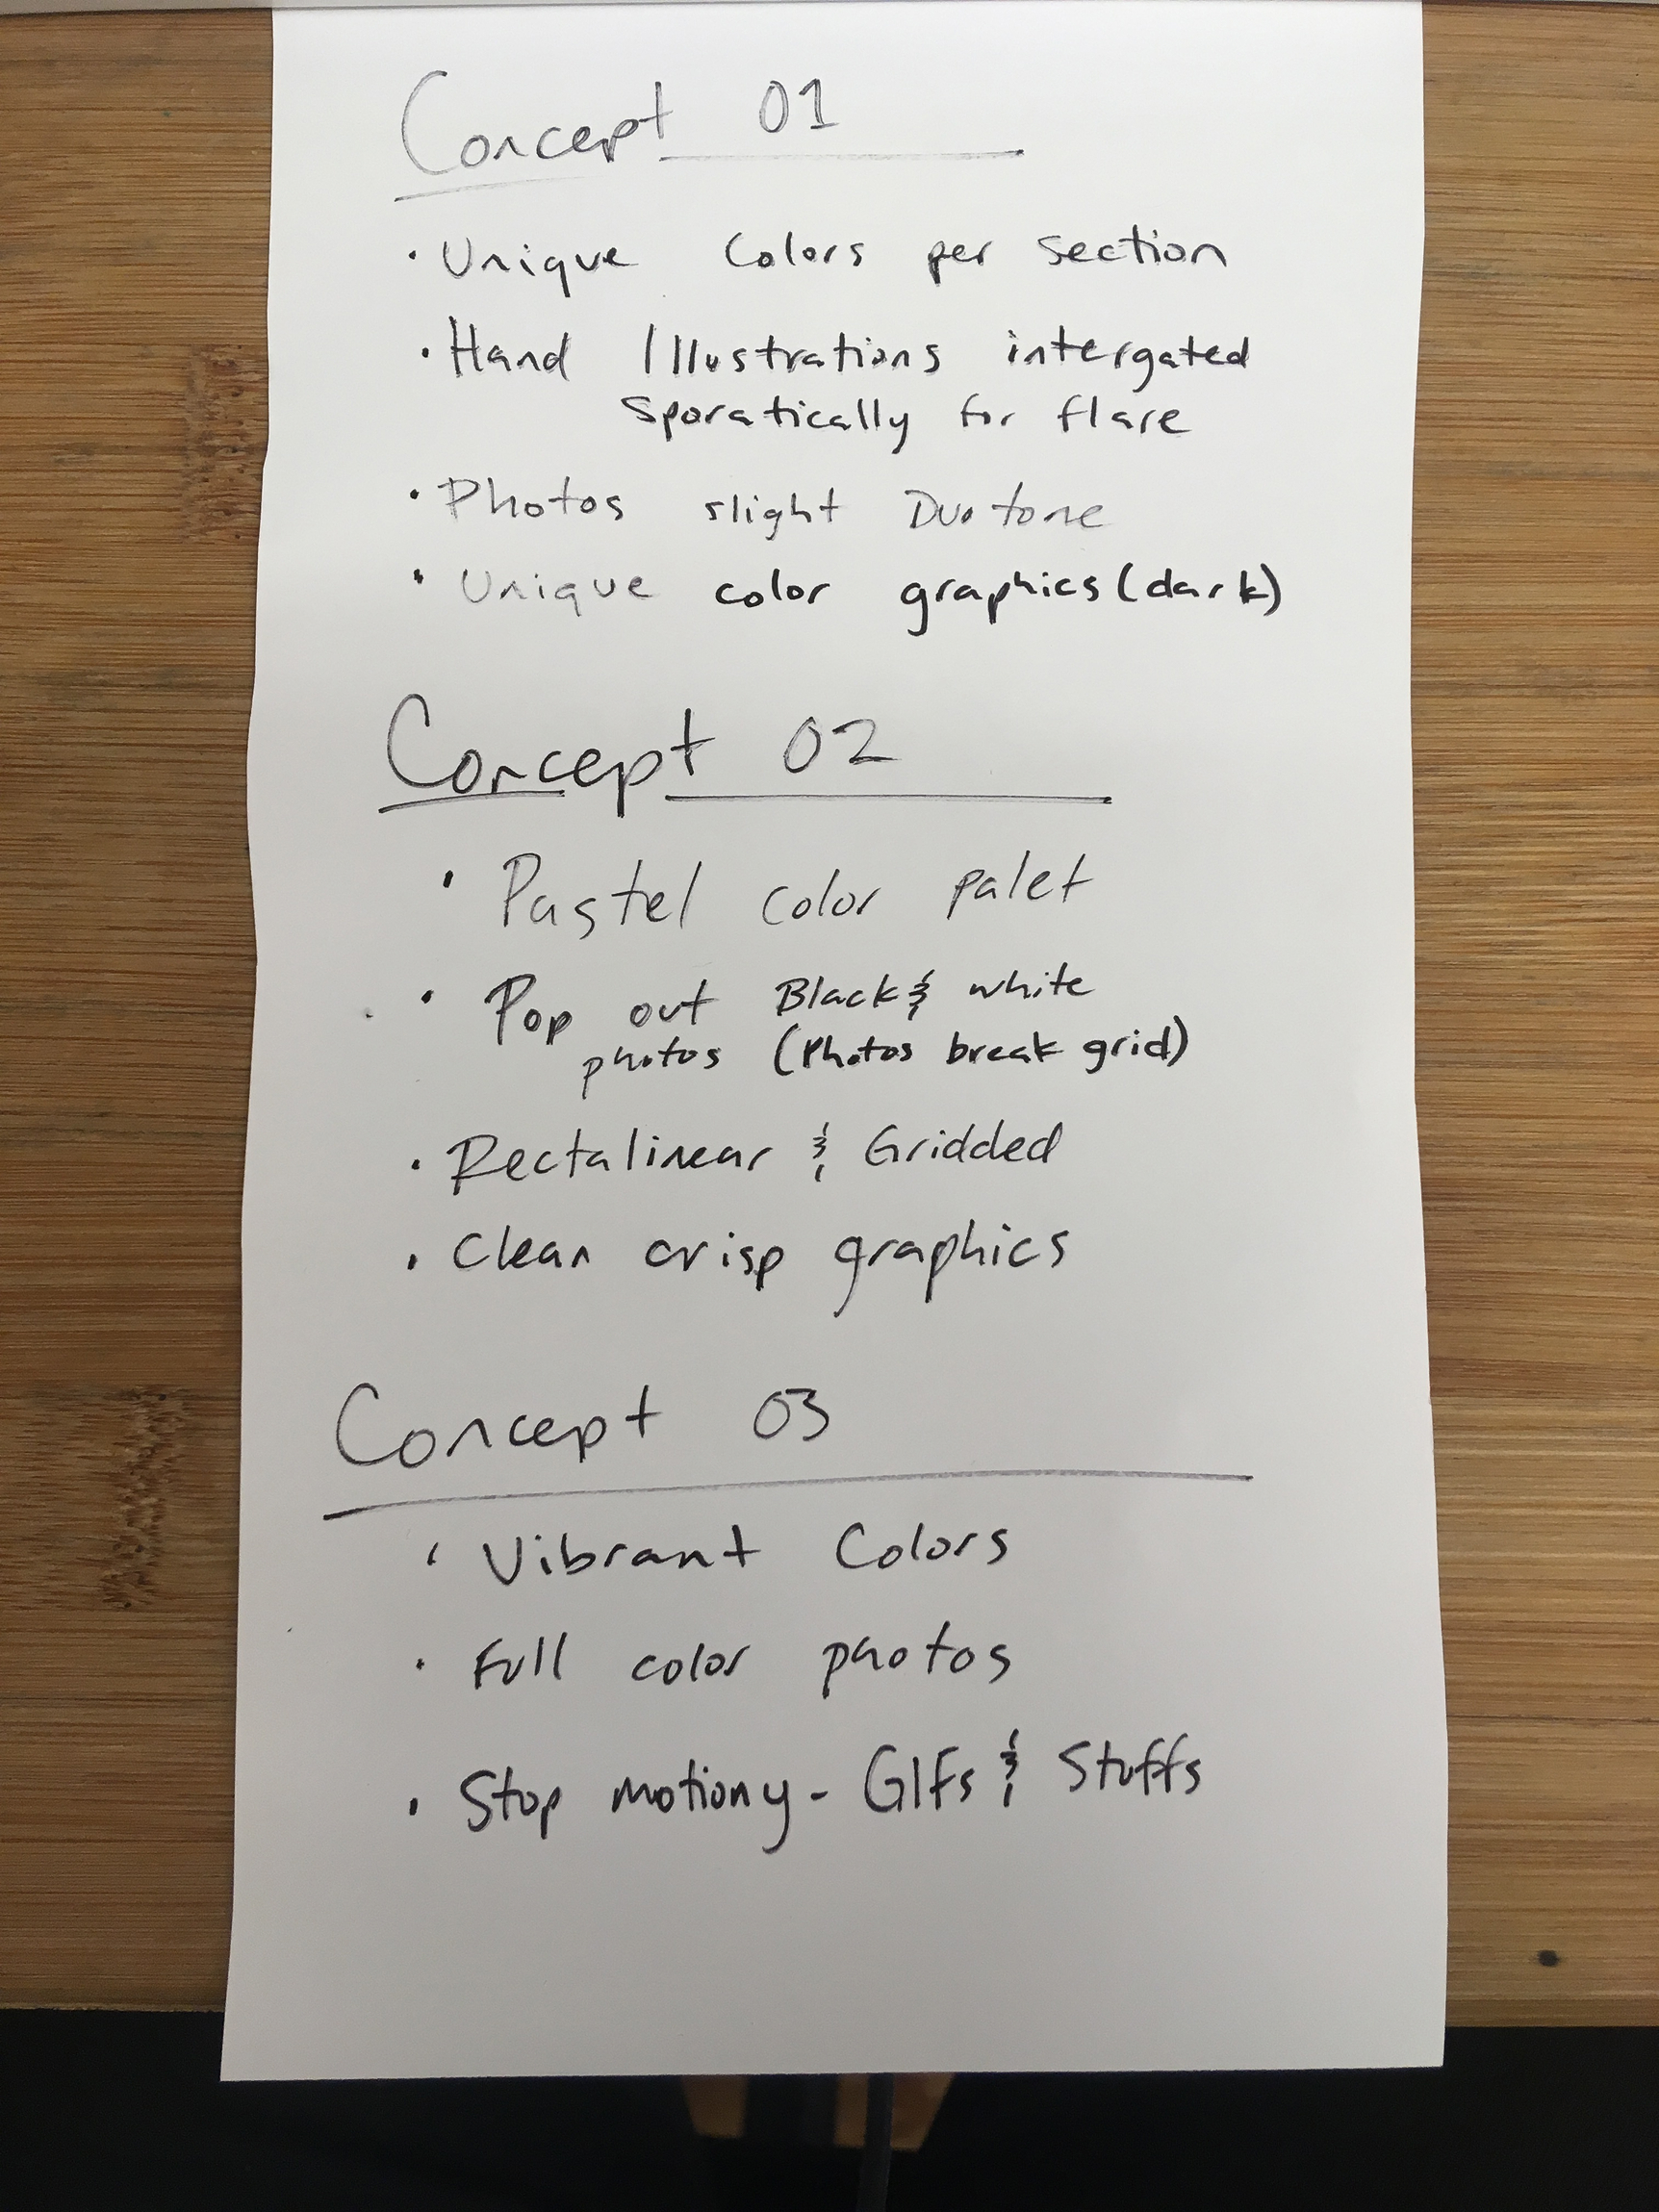 Concept 01
· Unique Colors per section
· Hand Illustrations intergated
Sporatically for flare
· Photos slight Duotone
· Unique color graphics (dark)
Concept 02
· Pastel color palet
· Pop out Black & white
photos (Photos break grid)
· Rectalinear & Gridded
· Clean crisp graphics
Concept 03
· Vibrant Colors
· Full color photos
· Stop motiony - GIFs & Stuffs